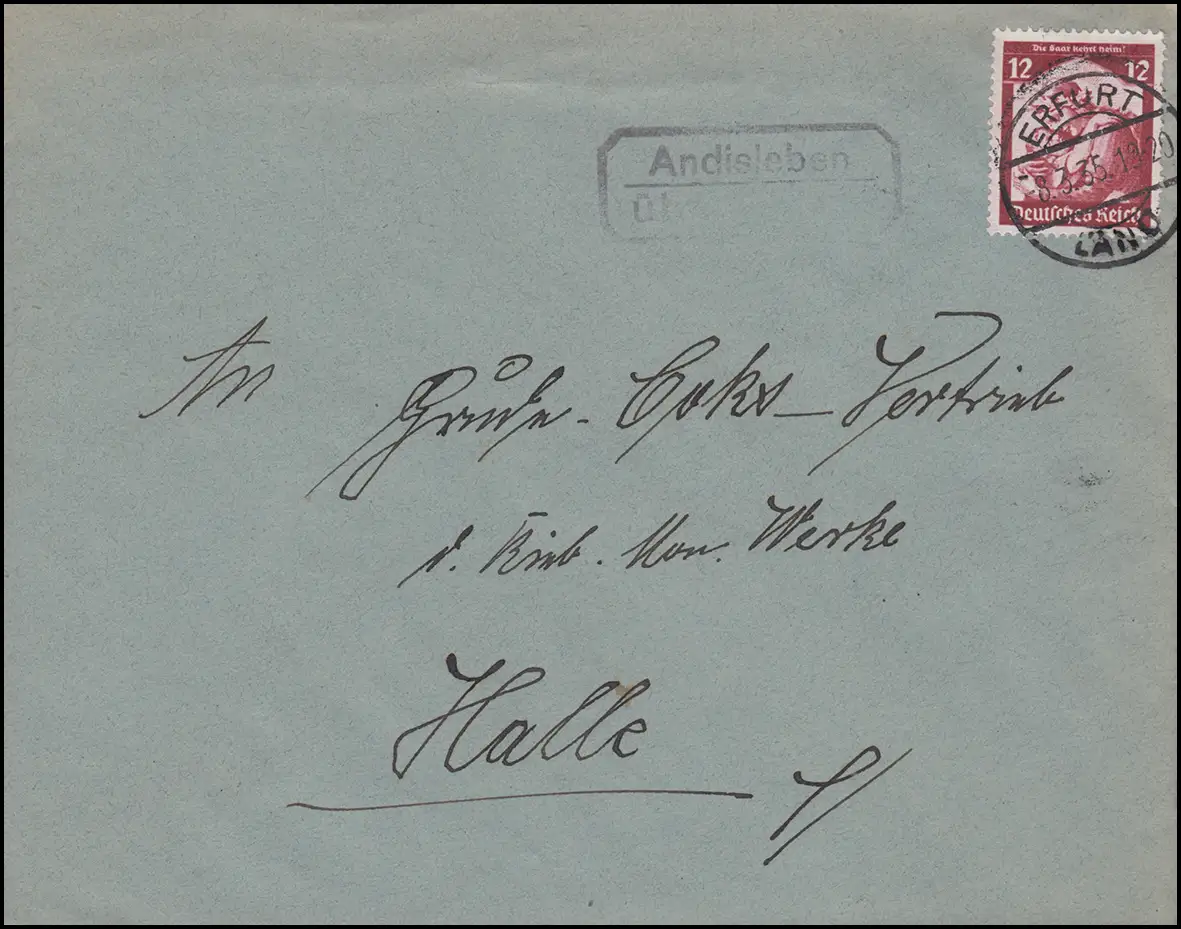 Die Saar kehrt heim!
12 12
Deutsches Reich
ERFURT
-8.3.35.19-20
LAND
Andisleben
üb
An Grude-Coks-Vertrieb
d. Rieb. Mon. Werke
Halle